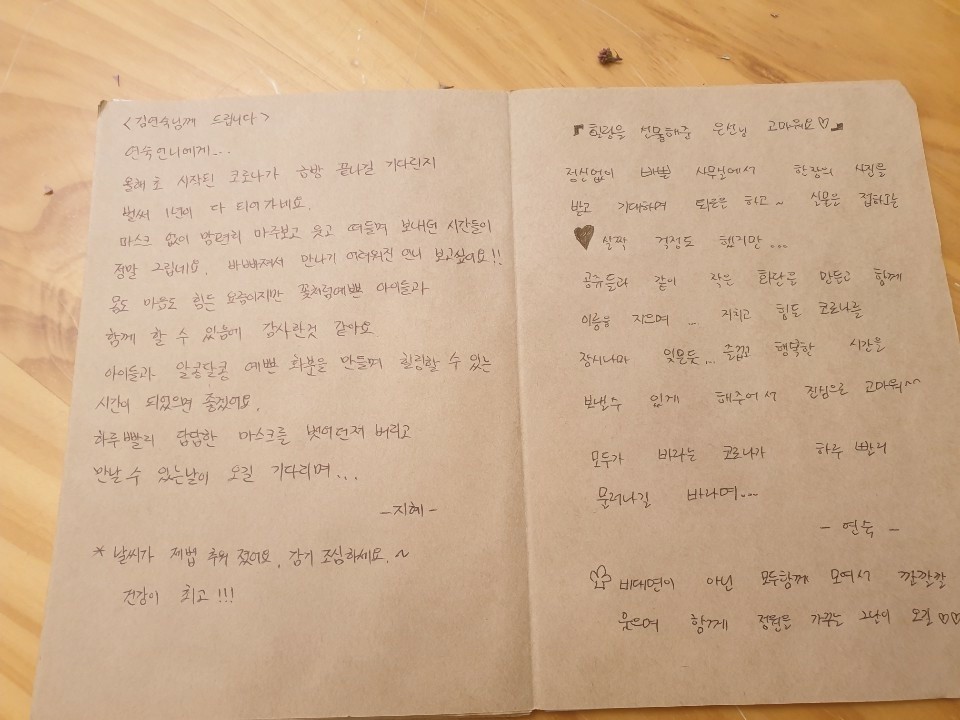 <김연숙님께 드립니다>
연숙언니에게...
올해 초 시작된 코로나가 금방 끝나길 기다린지
벌써 1년이 다 되어가네요.
마스크 없이 맘편히 마주보고 웃고 떠들며 보내던 시간들이
정말 그립네요. 바빠져서 만나기 어려워진 언니 보고싶어요!!
몸도 마음도 힘든 요즘이지만 꽃처럼예쁜 아이들과
함께 할 수 있음에 감사한것 같아요
아이들과 알콩달콩 예쁜 화분을 만들며 힐링할 수 있는
시간이 되었으면 좋겠어요.
하루빨리 답답한 마스크를 벗어던져 버리고
만날 수 있는날이 오길 기다리며...
-지혜-
* 날씨가 제법 추워 졌어요. 감기 조심하세요.~
건강이 최고!!!
『힐링을 선물해준 은선님 고마워요♡』
정신없이 바쁠 사무실에서 한장의 사진을
받고 기대하며 퇴근은 하고~ 식물은 접하고는
♥ 살짝 걱정도 했지만...
공쥬들과 같이 작은 화단을 만들고 함께
이름을 지으며... 지치고 힘든 코로나를
잠시나마 잊은듯... 즐겁고 행복한 시간을
보낼수 있게 해주어서 진심으로 고마워^^
모두가 바라는 코로나가 하루 빨리
물러나길 바라며...
- 연숙 -
비대면이 아닌 모두함께 모여서 깔깔깔
웃으며 함께 정원을 가꾸는 그날이 오길♡♡